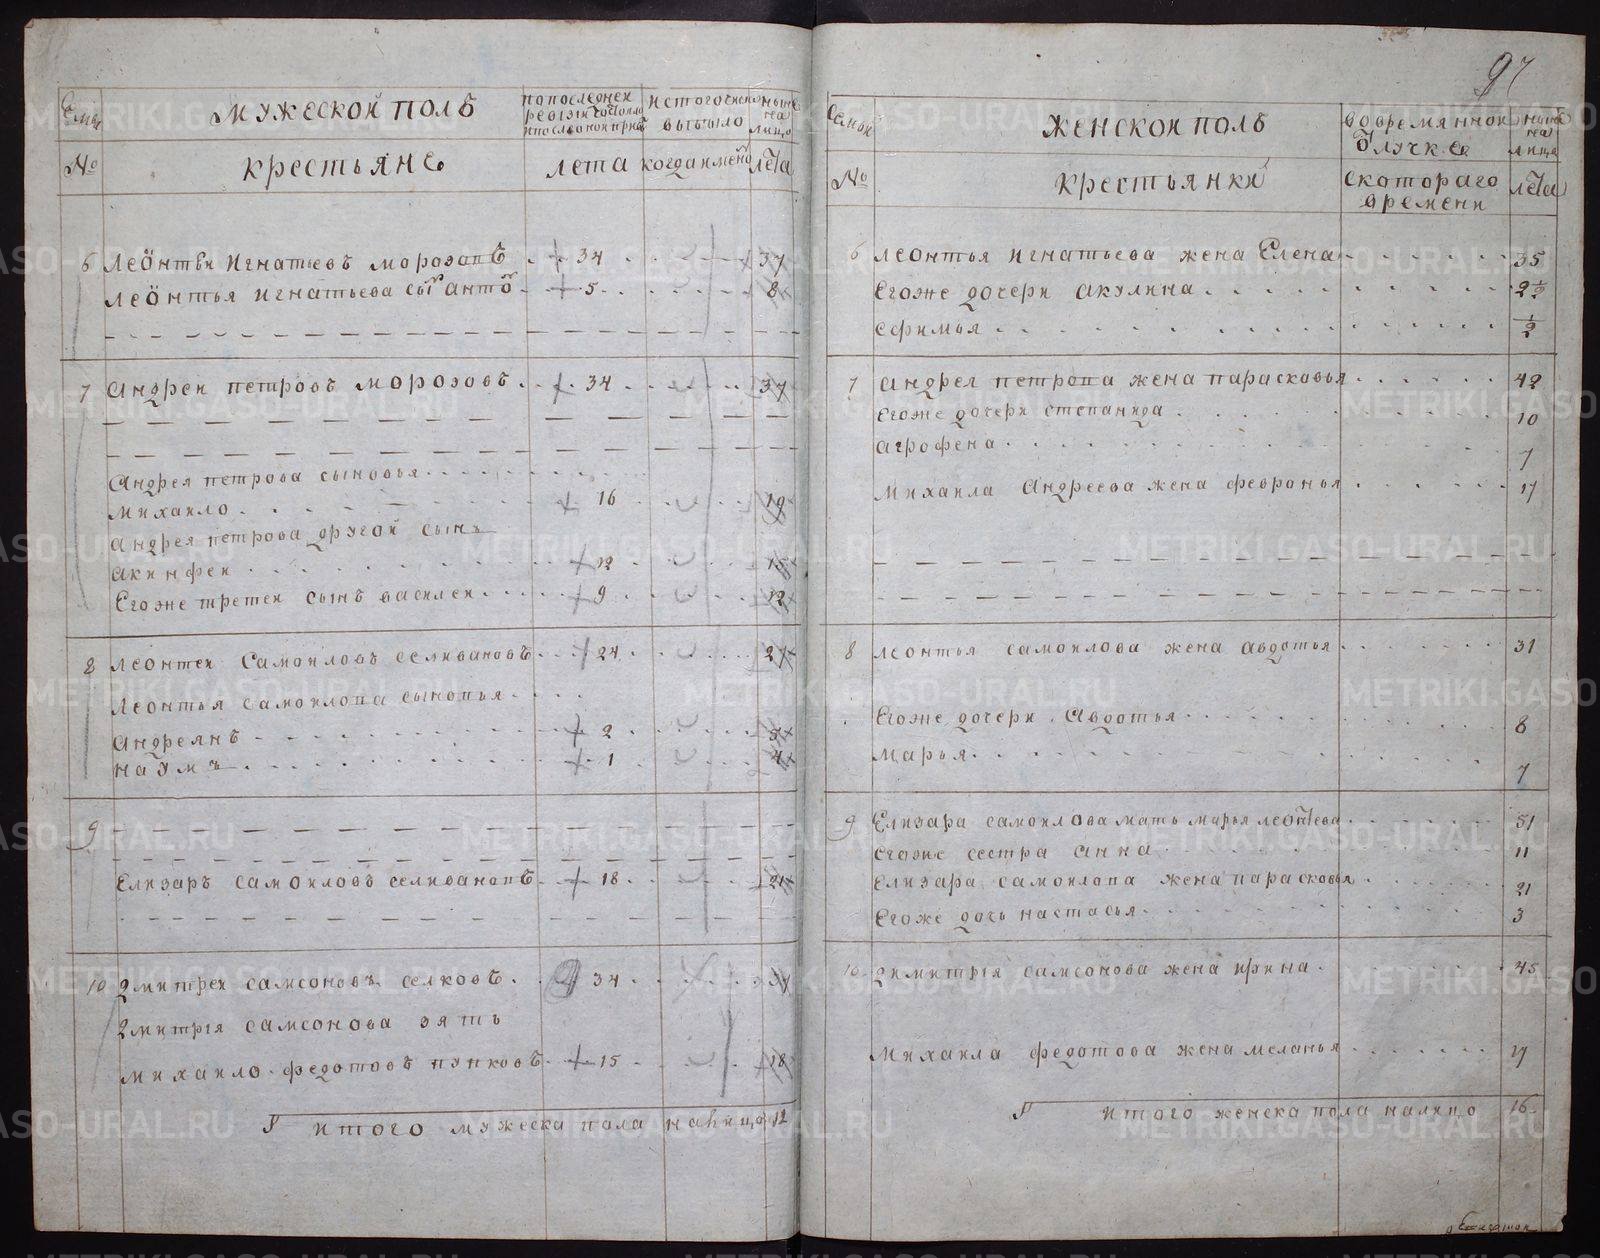 97
Семьи
мужеской полъ
по последней ревизiи состояло и после оной прибы
ис того числа выбыло
ныне на лицо
№
крестьяне
лета
когда имяно
лета
6 леонтеи Игнатьевъ морозовъ 34 37
леонтья игнатьева сынъ антонъ 5 8
7 андреи петровъ морозовъ 34 37
андрея петрова сыновья
михаило 16 19
андрея петрова другой сынъ
акинфеи 12 15
Егоже третеи сынъ василеи 9 12
8 леонтеи Самоиловъ селивановъ 24 27
леонтья самоилова сыновья
андреянъ 2 5
наумъ 1 4
9
Елизаръ самоиловъ селивановъ 18 21
10 дмитреи самсоновъ селковъ 34 37
дмитрiя самсонова зять
михаило федотовъ пунковъ 15 18
итого мужеска пола налицо 12
Семьи
женской полъ
во временной отлучке
ныне на лицо
№
крестьянки
с котораго времени
лета
6 леонтья игнатьева жена Елена 35
Егоже дочери акулина 2 1/2
ефимья 1/2
7 андрея петрова жена парасковья 42
Егоже дочери степанида 10
агрофена 7
михаила андреева жена февронья 17
8 леонтья самоилова жена авдотья 31
Егоже дочери авдотья 8
марья 7
9 Елизара самоилова мать марья леонтьева 51
Егоже сестра анна 11
Елизара самоилова жена парасковья 21
Егоже дочь настасья 3
10 димитрiя самсонова жена ирина 45
михаила федотова жена меланья 17
итого женска пола налицо 16